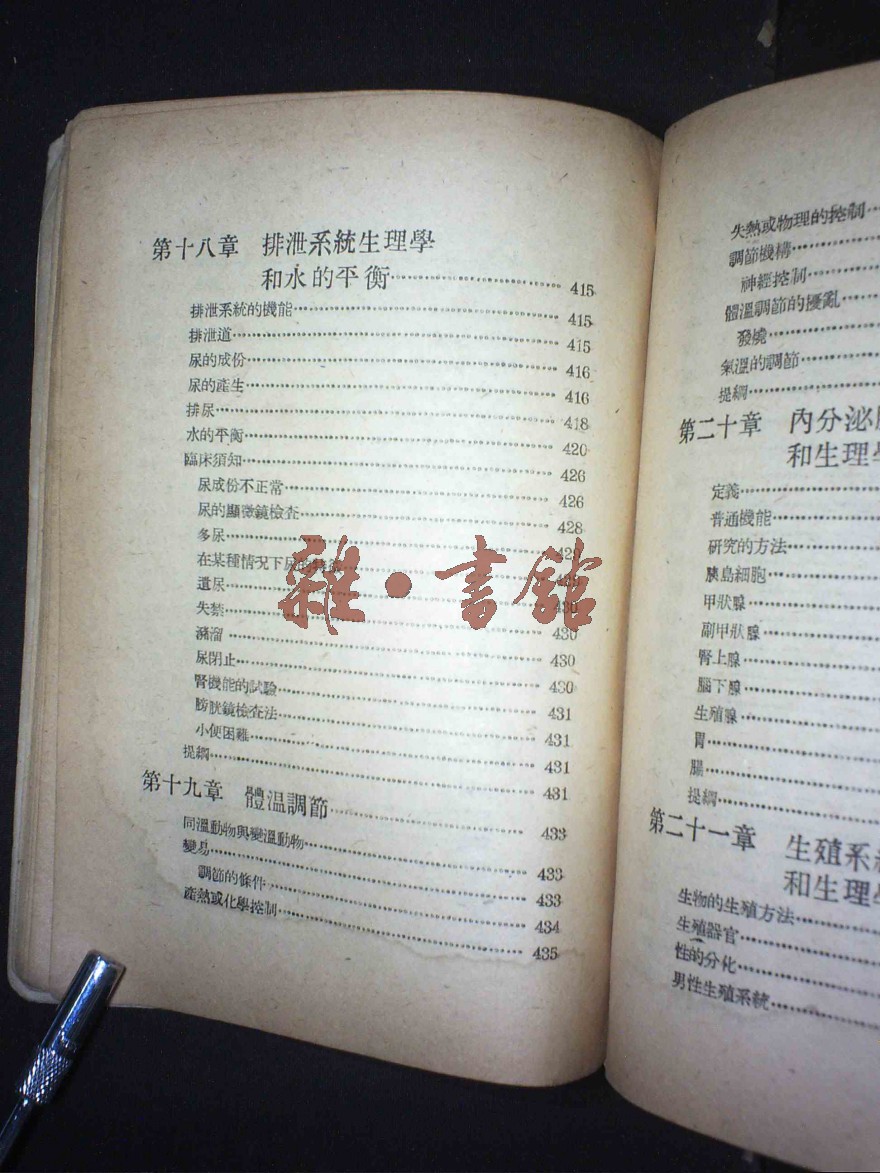 第十八章 排泄系統生理學
和水的平衡……415
排泄系統的機能……415
排泄道……415
尿的成份……416
尿的產生……416
排尿……418
水的平衡……420
臨床須知……426
尿成份不正常……426
尿的顯微鏡檢查……428
多尿……
在某種情況下尿的……429
遺尿……430
失禁……430
瀦溜……430
尿閉止……430
腎機能的試驗……431
膀胱鏡檢查法……431
小便困難……431
提綱……431
第十九章 體温調節……433
同溫動物與變溫動物……433
變易……433
調節的條件……434
產熱或化學控制……435
雜·書館
失熱或物理的控制……
調節機構……
神經控制……
體溫調節的擾亂……
發燒……
氣溫的調節……
提綱……
第二十章 內分泌
和生理
定義……
普通機能……
研究的方法……
胰島細胞……
甲狀腺……
副甲狀腺……
腎上腺……
腦下腺……
生殖腺……
胃……
腸……
提綱……
第二十一章 生殖系
和生理
生物的生殖方法……
生殖器官……
性的分化……
男性生殖系統……